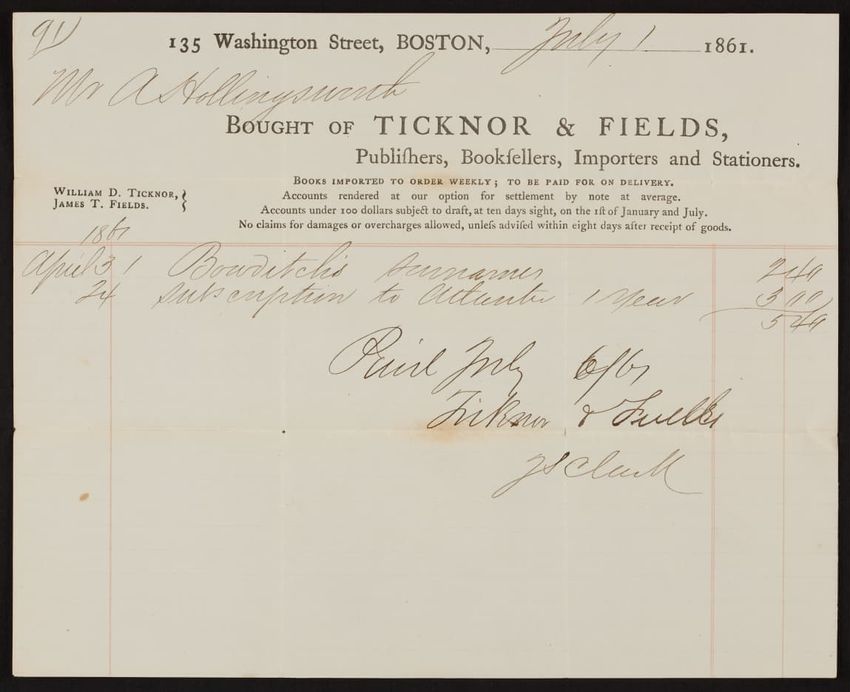 91
135 Washington Street, BOSTON, July 1 1861.
Mr A Hollingsworth
BOUGHT OF TICKNOR & FIELDS,
Publiſhers, Bookſellers, Importers and Stationers.
BOOKS IMPORTED TO ORDER WEEKLY; TO BE PAID FOR ON DELIVERY.
WILLIAM D. TICKNOR,
JAMES T. FIELDS.
Accounts rendered at our option for settlement by note at average.
Accounts under 100 dollars subject to draft, at ten days sight, on the 1ſt of January and July.
No claims for damages or overcharges allowed, unleſs adviſed within eight days after receipt of goods.
1861
April 3 1 Bowditch's surnames 2 40
24 subscription to Atlantic 1 Year 3 00
5 40
Paid July 6/61
Ticknor & Fields
Clark